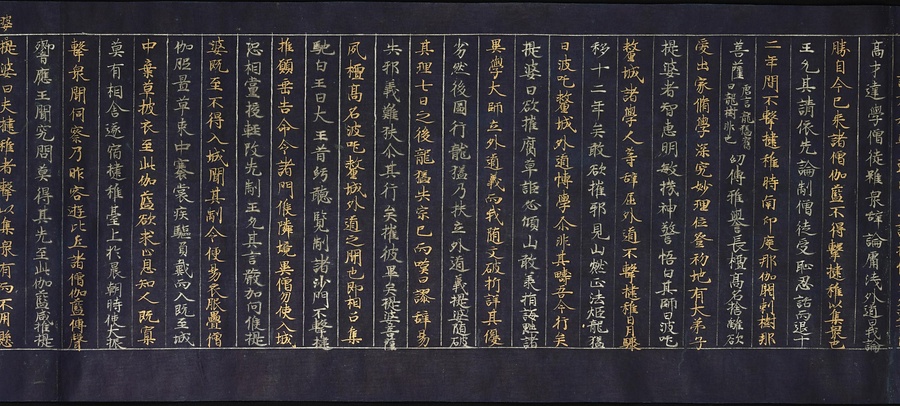 高才達學僧徒雖衆辞論庸淺外道曰義論
勝自今已来諸僧伽藍不得擊揵稚以集衆也
王允其請依先論制僧徒受恥忍詬而退十
二年間不擊揵稚時南印度那伽閼剌樹那
菩薩唐言龍猛舊曰龍樹非也幼傳雅譽長擅高名捨離欲
愛出家脩學深究妙理位登初地有大弟子
提婆者智慧明敏機神警悟白其師曰波吒
釐城諸學人等辞屈外道不擊揵稚日月驟
移十二年矣敢欲摧邪見山燃正法炬龍猛
曰波吒釐城外道博學尒非其疇吾今行矣
提婆曰欲摧腐草詎忩傾山敢承指誨黜諸
異學大師立外道義而我随文破析詳其優
劣然後圖行龍猛乃扶立外道義提婆随破
其理七日之後龍猛失宗已而嘆曰謬辞易
失邪義難扶尒其行矣摧彼畢矣提婆菩薩
夙擅高名波吒釐城外道之聞也即相召集
馳白王曰大王昔紆聽覧制諸沙門不擊揵
稚願垂告命令諸門候隣境異僧勿使入城
恐相黨援輕改先制王允其言嚴加伺候提
婆既至不得入城聞其制令便易衣服疊僧
伽胝置草束中褰裳疾驅負戴而入既至城
中棄草披衣至此伽藍欲求止息知人既寡
莫有相舍遂宿揵稚臺上於晨朝時便大振
擊衆聞伺察乃昨客遊比丘諸僧伽藍傳聲
響應王聞究問莫得其先至此伽藍咸推提
婆提婆曰夫揵稚者擊以集衆有而不用懸